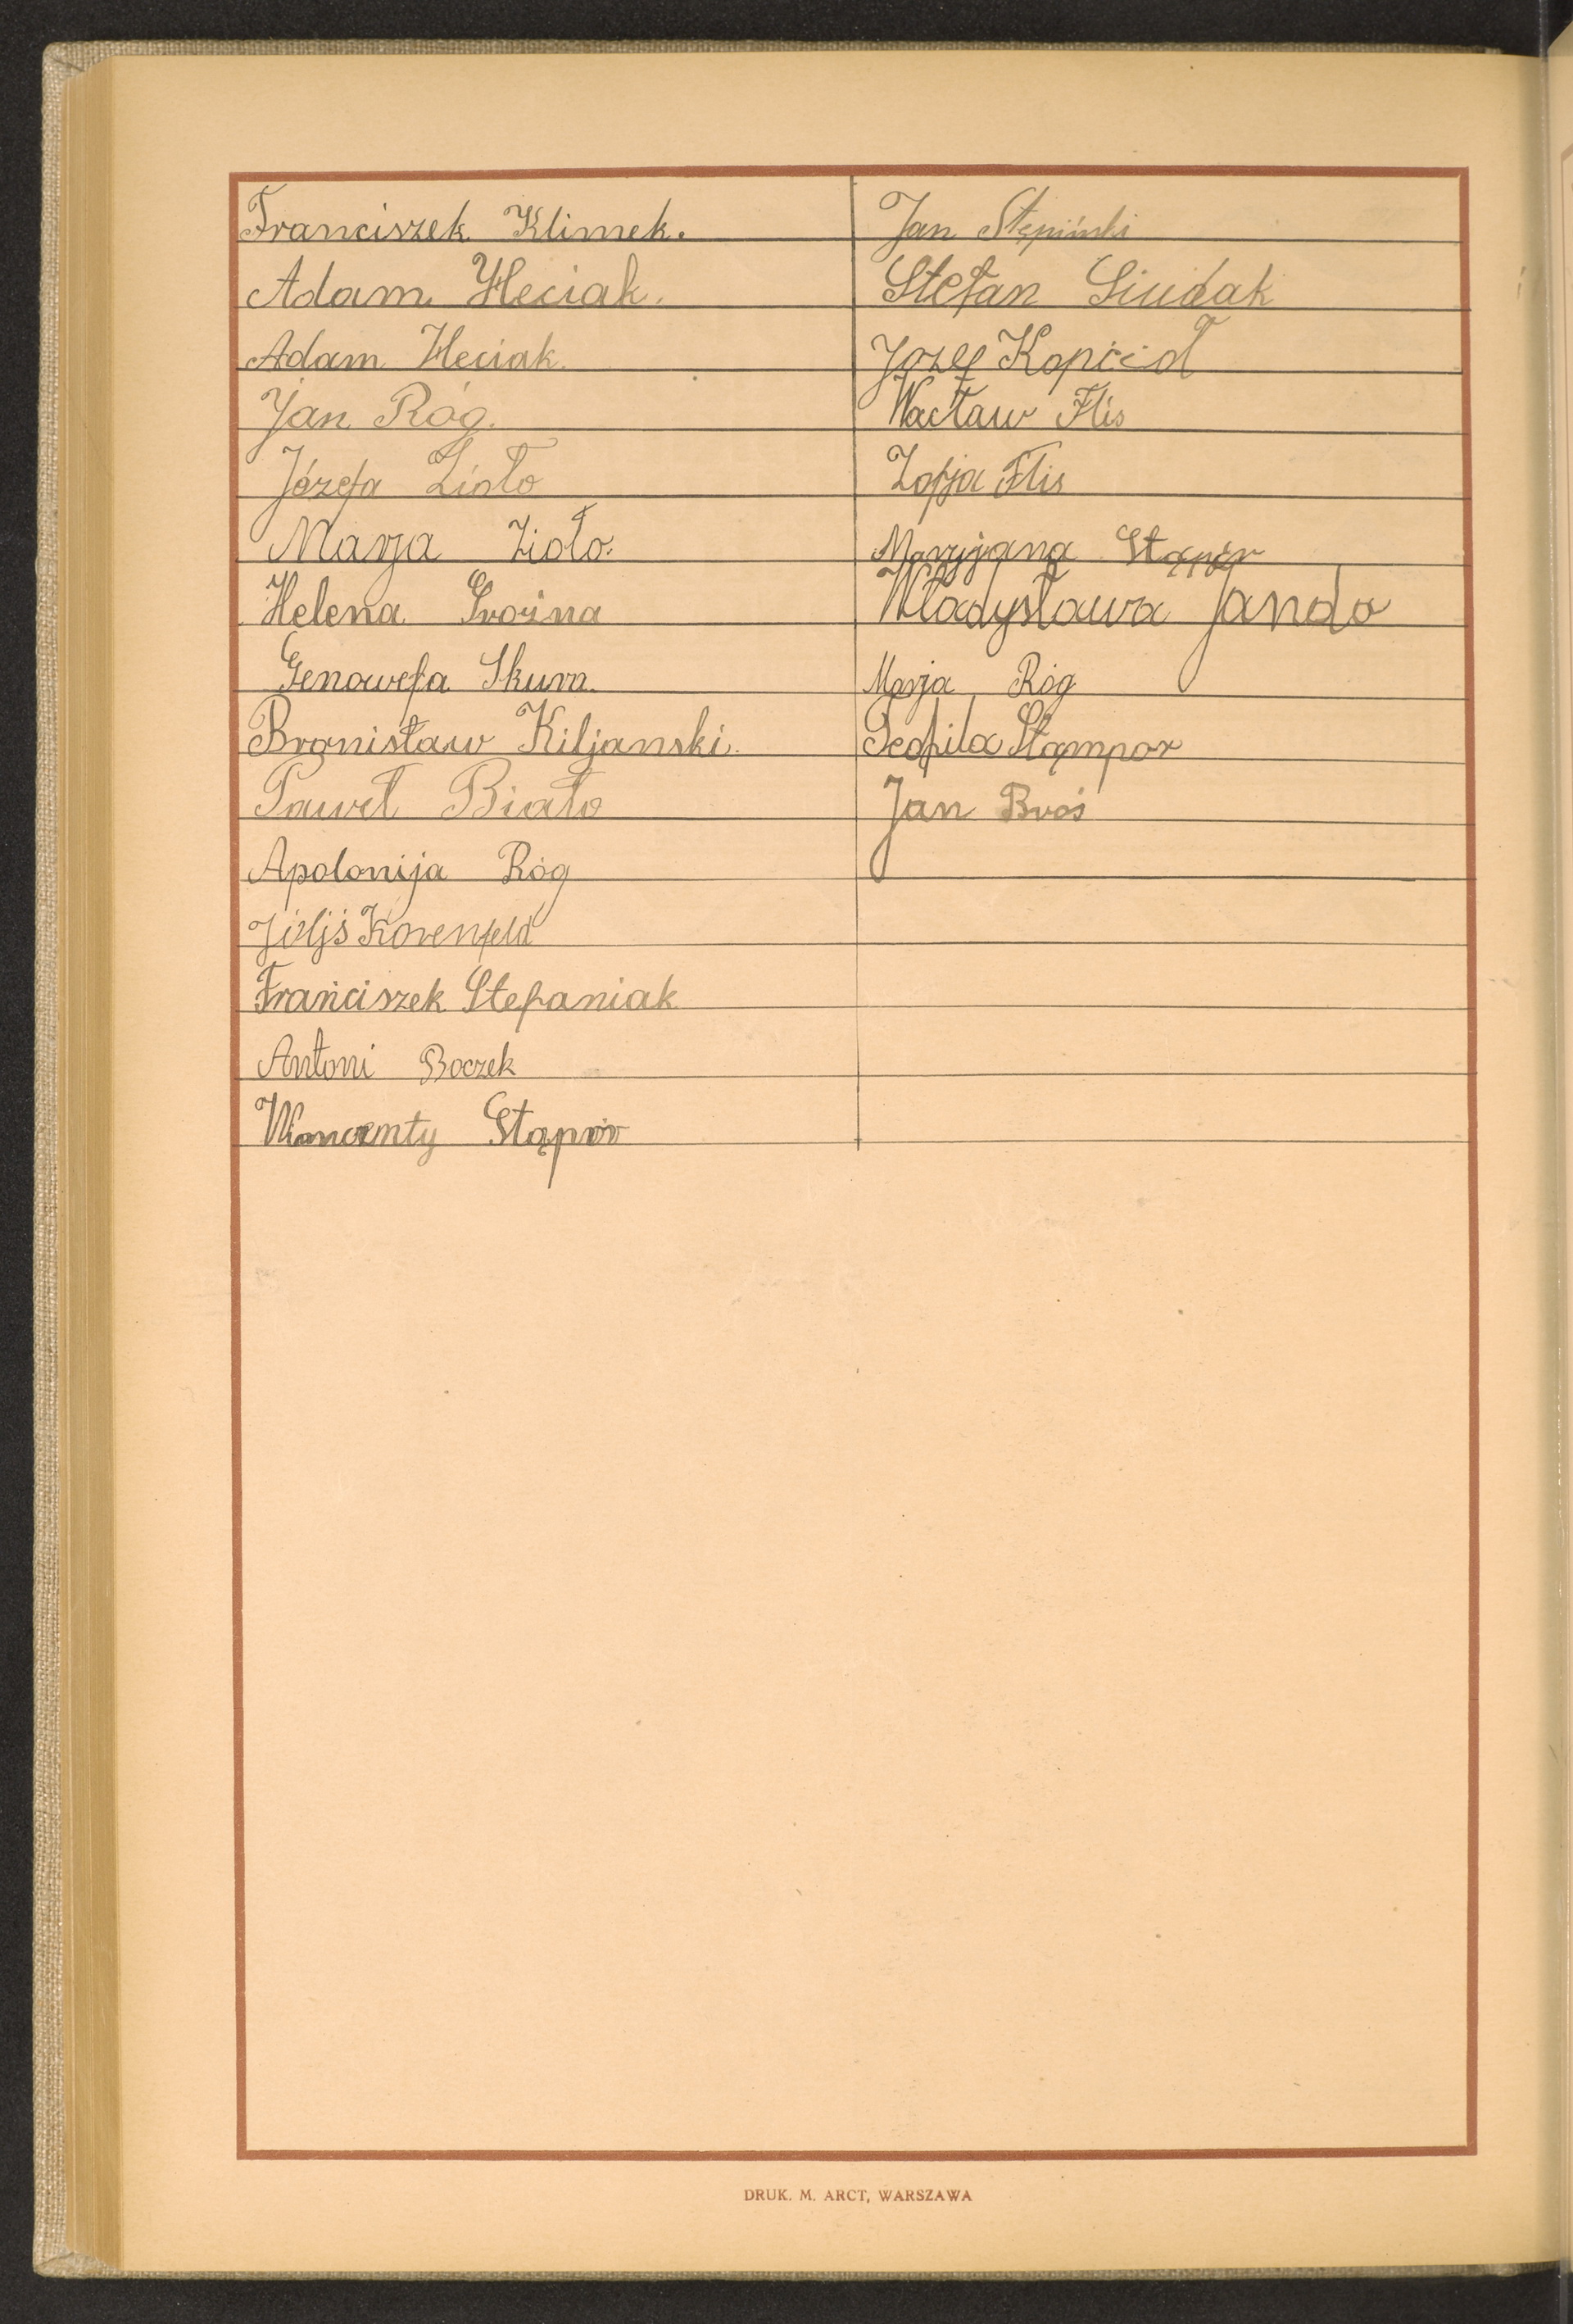 Franciszek Klimek.
Adam Heciak.
Adam Heciak.
Jan Róg.
Józefa Zioło
Marja Zioło.
Helena Grożna
Genowefa Skura.
Bronisław Kiljanski.
Paweł Biało
Apolonija Róg
Korenfeld
Franciszek Stefaniak
Antoni Boczek
Stąpór
Jan Stępiński
Stefan Siudak
Jozef Kopicioł
Wacław Flis
Zofja Flis
Maryjana Stąpór
Władysława Jando
Marja Róg
Teofila Stąmpor
Jan Broś
DRUK. M. ARCT, WARSZAWA